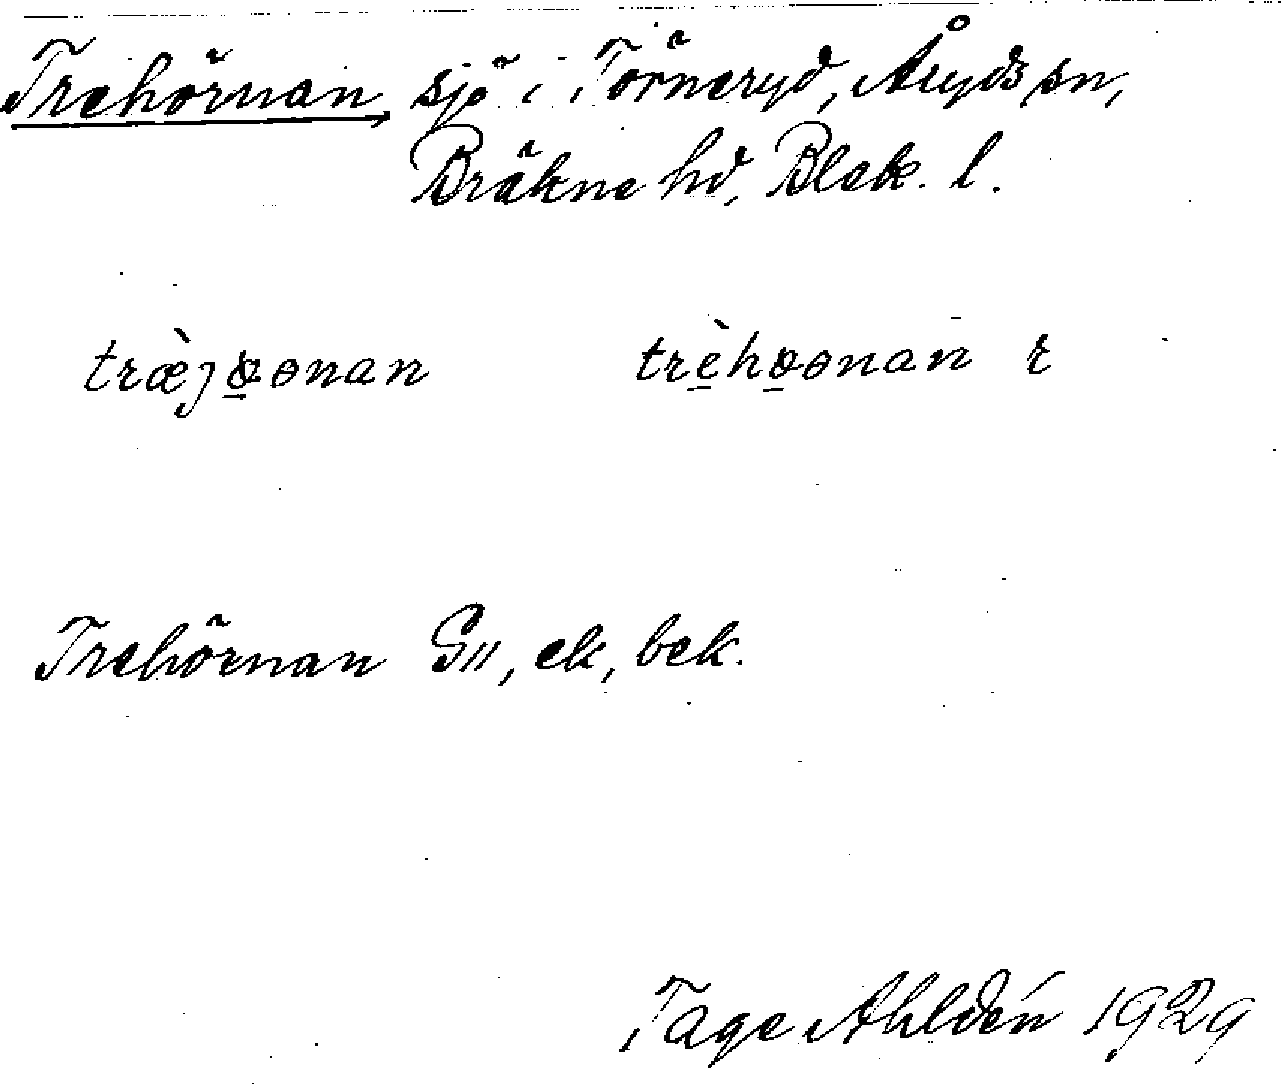 Trehörnan sjö i Törneryd, Åryds sn,
Bräkne hd, Blek. l.
træ̀jꝋ̱ɵnan trè̱hꝋ̱ɵnan r
Trehörnan G11, ek, bek.
Tage Ahldén 1929